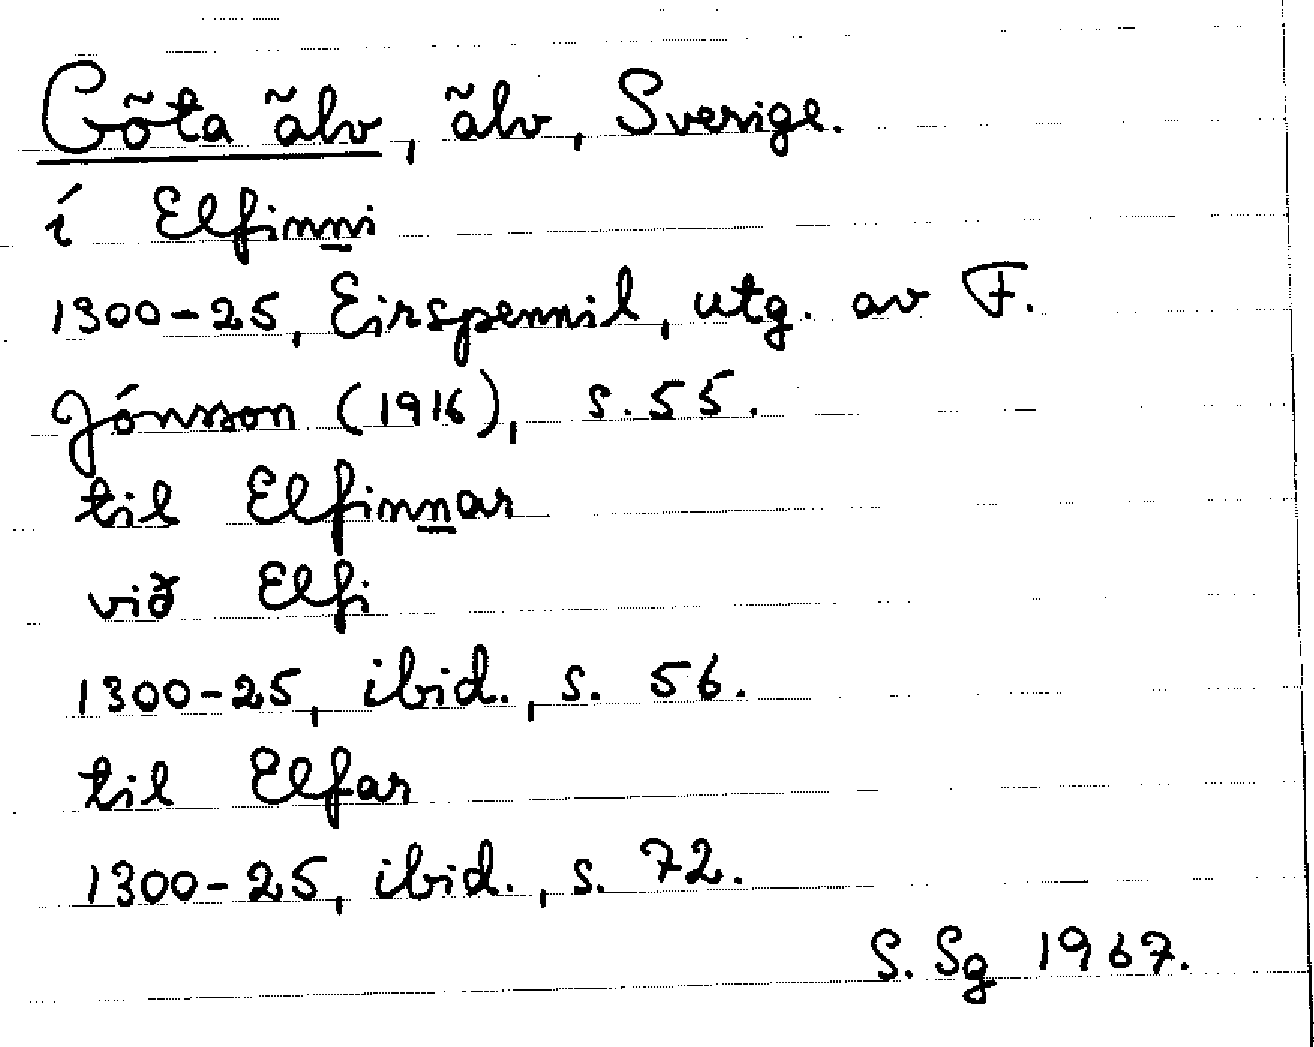 Göta älv, älv, Sverige.
í Elfinni
1300-25, Eirspennil, utg. av F.
Jónsson (1916), s. 55.
til Elfinnar
við Elfi
1300-25, ibid., s. 56.
til Elfar
1300-25, ibid., s. 72.
S. Sg 1967.